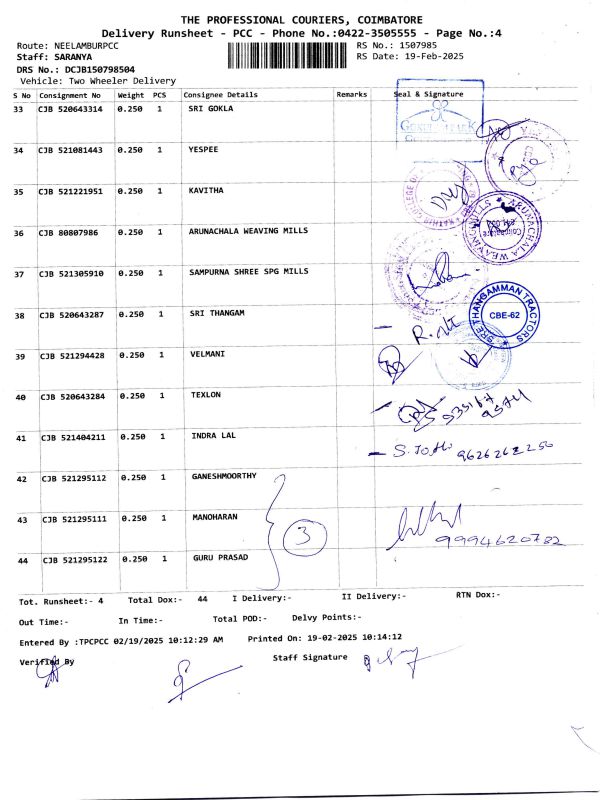 THE PROFESSIONAL COURIERS, COIMBATORE
Delivery Runsheet - PCC - Phone No.:0422-3505555 - Page No.:4
Route: NEELAMBURPCC RS No.: 1507985
Staff: SARANYA RS Date: 19-Feb-2025
DRS No.: DCJB150798504
Vehicle: Two Wheeler Delivery
S No Consignment No Weight PCS Consignee Details Remarks Seal & Signature
33 CJB 520643314 0.250 1 SRI GOKLA
34 CJB 521081443 0.250 1 YESPEE
35 CJB 521221951 0.250 1 KAVITHA
36 CJB 80807986 0.250 1 ARUNACHALA WEAVING MILLS
ARUNACHALA WEAVING MILLS
Coimbatore
37 CJB 521305910 0.250 1 SAMPURNA SHREE SPG MILLS
38 CJB 520643287 0.250 1 SRI THANGAM
SREE THANGAMMAN TRACTORS
CBE-62
39 CJB 521294428 0.250 1 VELMANI
40 CJB 520643284 0.250 1 TEXLON
41 CJB 521404211 0.250 1 INDRA LAL
9626262250
42 CJB 521295112 0.250 1 GANESHMOORTHY
43 CJB 521295111 0.250 1 MANOHARAN
3
9994620782
44 CJB 521295122 0.250 1 GURU PRASAD
Tot. Runsheet:- 4 Total Dox:- 44 I Delivery:- II Delivery:- RTN Dox:-
Out Time:- In Time:- Total POD:- Delvy Points:-
Entered By :TPCPCC 02/19/2025 10:12:29 AM Printed On: 19-02-2025 10:14:12
Verified By Staff Signature